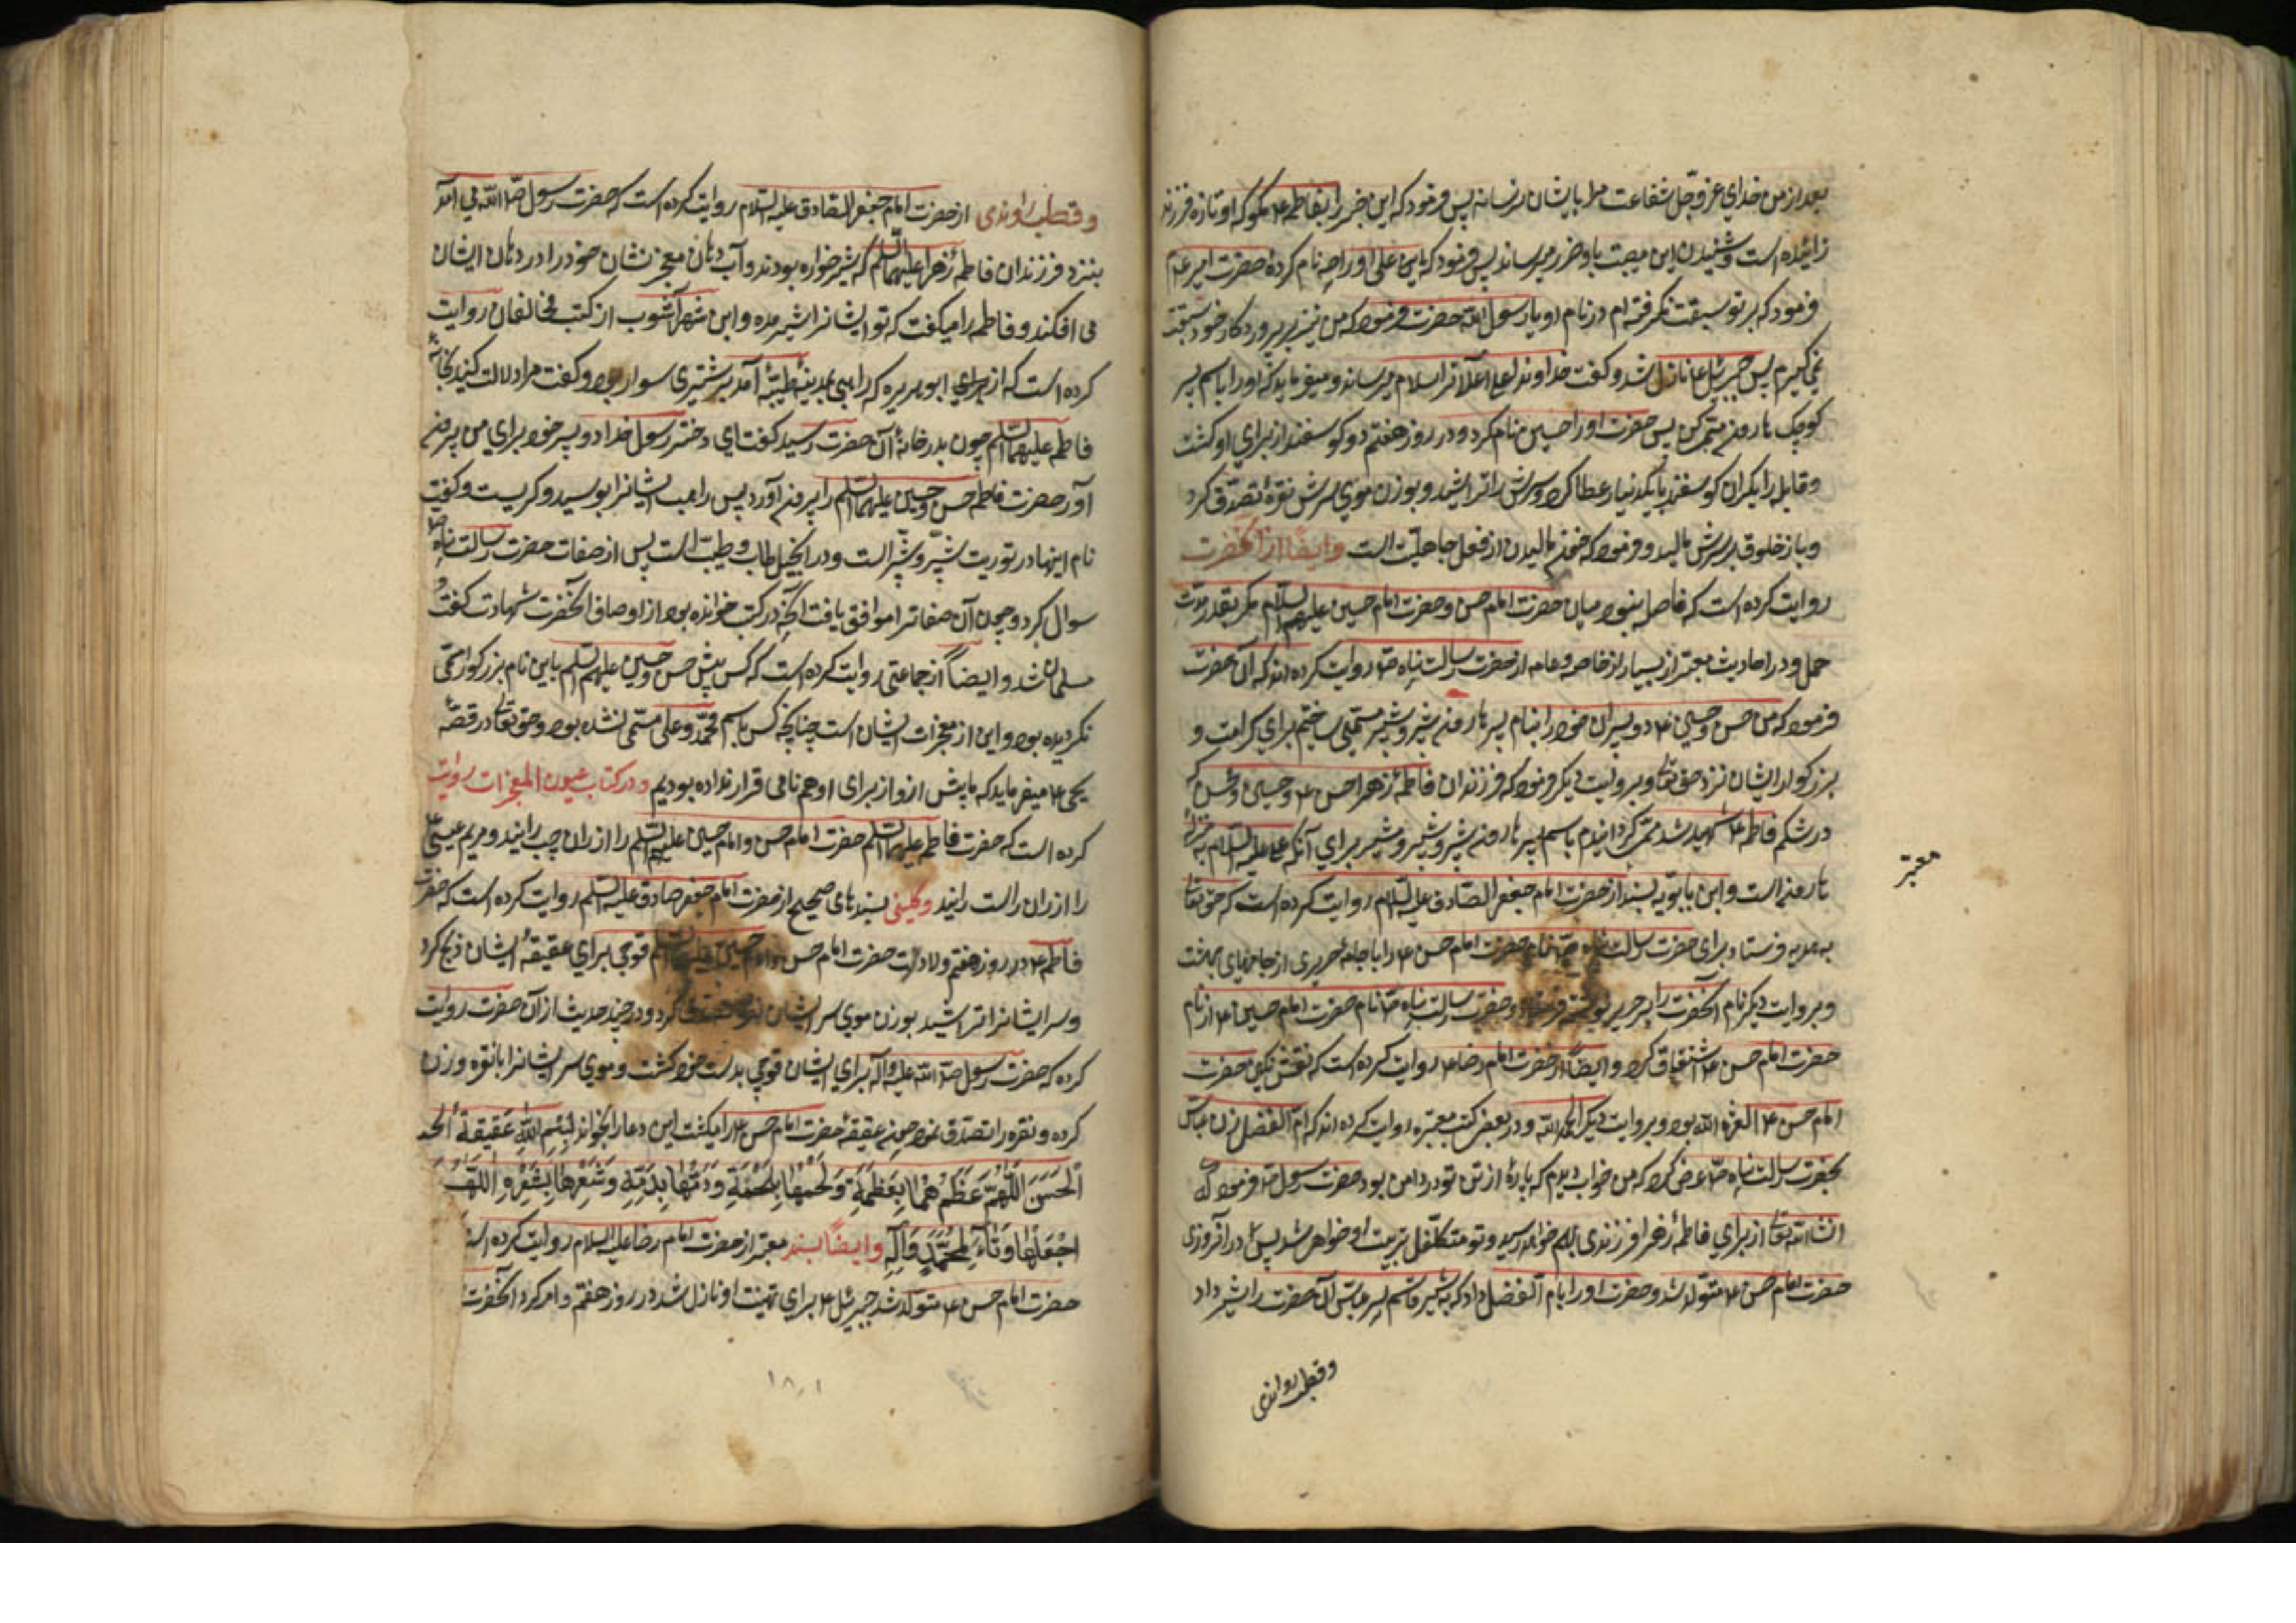 بعد از من خدای عز و جل شفاعت مرا بایشان نرساند پس فرمود که این خبر را بفاطمه ع مگو که او تازه فرزند
زائیده است و شنیدن این مصیبت باو ضرر میرساند پس فرمود که یا علی او را چه نام کردهٔ حضرت امیر ع
فرمود که بر تو سبقت نگرفته ام در نام او یا رسول الله حضرت فرمود که من نیز بر پروردگار خود سبقت
نمی گیرم پس جبرئیل ع نازل شد و گفت خداوند اعلا ترا سلام میرساند و میفرماید که او را باسم پسر
کوچک هارون مسمی کن پس حضرت او را حسین نام کرد و در روز هفتم دو گوسفند از برای او کشت
و قابله را یکران گوسفند با یکدینار عطا کرد و سرش را تراشید و بوزن موی سرش نقره تصدّق کرد
و باز خلوق بر سرش مالید و فرمود که خون مالیدن از فعل جاهلیّت است وایضًا از آنحضرت
روایت کرده است که فاصله نبود میان حضرت امام حسن و حضرت امام حسین علیهم السلام مگر بقدر مدت
حمل و در احادیث معتبر از بسیار از خاصه و عامه از حضرت رسالت پناه ص روایت کرده اند که آن حضرت
فرمود که من حسن و حسین ع دو پسران خود را بنام پسر هارون شبر و شبیر مسمّی ساختم برای کرامت و
بزرگواری ایشان نزد حق تعالی و بروایت دیگر فرمود که فرزندان فاطمهٔ زهرا حسن ع و حسین و محسن که
در شکم فاطمه ع شهید شد مسمی گردانیدم باسم پسر هارون شبر و شبیر و مشبر برای آنکه علی علیه السلام بمنزله
هارون است و ابن بابویه بسند از حضرت امام جعفر الصّادق علیه السلام روایت کرده است که حق تعالی
به هدیه فرستاد برای حضرت رسالت پناه ص نام حضرت امام حسن ع را با جامهٔ حریری از جامهای بهشت
و بروایت دیگر نام آنحضرت را بر حریر نوشته فرستاد و حضرت رسالت پناه ص نام حضرت امام حسین ع از نام
حضرت امام حسن ع اشتقاق کرد و ایضًا از حضرت امام رضا ع روایت کرده است که نقش نگین حضرت
امام حسن ع العزة لله بود و بروایت دیگر الحمد لله و در بعضی کتب معتبره روایت کرده اند که امّ الفضل زن عباس
بحضرت رسالت پناه ص عرض کرد که من خواب دیدم که پارهٔ از تن تو در دامن بود حضرت رسول ص فرمود که
انشاء الله تعالی از برای فاطمهٔ زهرا فرزندی بهم خواهد رسید و تو متکلّفل تربیت او خواهی شد پس در آنروزی
حضرت امام حسن ع متولد شد و حضرت او را بام الفضل داد که بشیر قثم پسر عباس آن حضرت را شیر داد
معتبر
و قطب راوندی
و قطب راوندی از حضرت امام جعفر الصّادق علیه السلام روایت کرده است که حضرت رسول ص الله می آمد
بنزد فرزندان فاطمهٔ زهرا علیهما السلم که شیر خواره بودند و آب دهان معجز نشان خود را در دهان ایشان
می افکند و فاطمه را میگفت که تو ایشانرا شیر مده و ابن شهر آشوب از کتب مخالفان روایت
کرده است که از برای ابو هریره که راهبی بمدینهٔ طیبّه آمد بر شتری سوار بود و گفت مرا دلالت کنید بخانهٔ
فاطمه علیهما السلم چون بدر خانهٔ آن حضرت رسید گفت ای دختر رسول خدا دو پسر خود برای من بیرون
آور حضرت فاطمه حسن و حسین علیهما السلم را بیرون آورد پس راهب ایشانرا بوسید و گریست و گفت
نام اینها در توریت شبّر و شبّیر است و در انجیل طاب و طیب است پس از صفات حضرت رسالت پناه ص
سوال کرد و چون آن صفات را موافق یافت آنچه در کتب خوانده بود از اوصاف آنحضرت شهادت گفت و
مسلمان شد و ایضًا از جماعتی روایت کرده است که کسی پیش حسن و حسین علیهم السلم باین نام بزرگوار مسمّی
نگردیده بود و این از معجزات ایشان است چنانچه کسی باسم محمّد و علی مسمّی نشده بود و حق تعالی در قصّهٔ
یحیی ع میفرماید که ما پیش از او از برای او هم نامی قرار نداده بودیم و در کتاب عیون المعجزات روایت
کرده است که حضرت فاطمه علیها السلم حضرت امام حسن و امام حسین علیهم السلم را از ران چپ زائید و مریم عیسی ع
را از ران راست زائید و کلینی بسند های صحیح از حضرت امام جعفر صادق علیه السلم روایت کرده است که حضرت
فاطمه ع در روز هفتم ولادت حضرت امام حسن و امام حسین علیهما السلم قوچی برای عقیقهٔ ایشان ذبح کرد
و سر ایشانرا تراشید بوزن موی سر ایشان نقره تصدق کرد و در چند حدیث از آن حضرت روایت
کرده که حضرت رسول ص الله علیه و آله برای ایشان قوچی بدست خود کشت و موی سر ایشانرا با نقره وزن
کرده و نقره را تصدّق نمود چون عقیقهٔ حضرت امام حسن ع را میکشت این دعا را بخواند بِسْمِ اللهِ عَقیقةٌ
الْحَسَنَ اللّٰهُمَّ عَظْمُهٰا بِعَظْمِهِ وَلَحْمُهٰا بِلَحْمِهِ وَدَمُهٰا بِدَمِهِ وَشَعْرُهٰا بِشَعْرِهِ اللّٰهُمَّ
اجْعَلْهٰا وِقَاءً لِمُحَمَّدٍ وَآلِهِ وایضًا بسند معتبر از حضرت امام رضا علیه السلام روایت کرده است
حضرت امام حسن ع متولد شد جبرئیل ع برای تهنیت او نازل شد در روز هفتم و امر کرد آنحضرت
۱۸۰۱